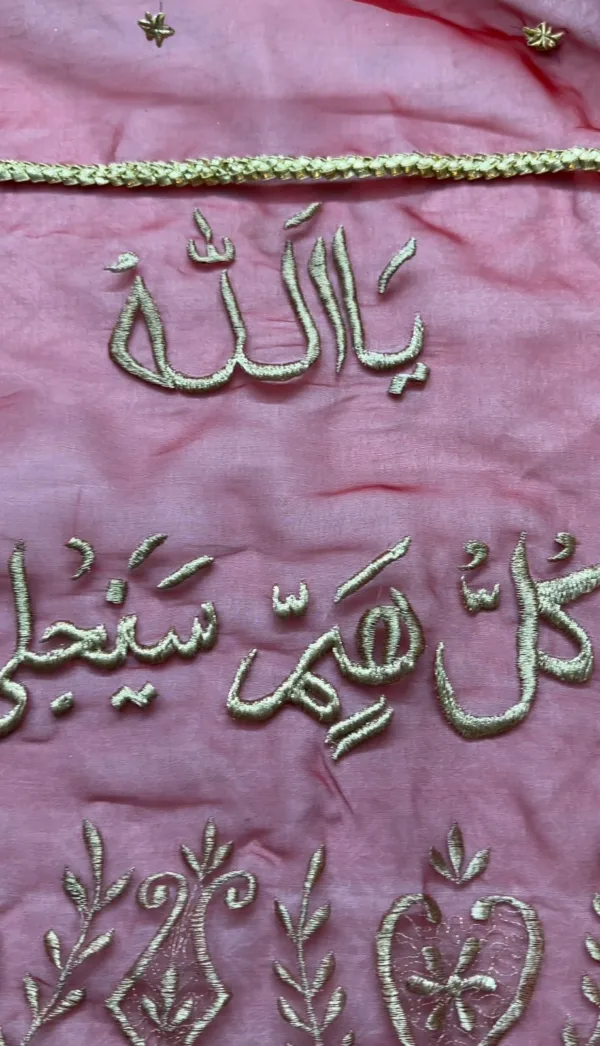 يَا اَللّٰهُ
كُلُّ هَمٍّ سَيَنْجَلِي